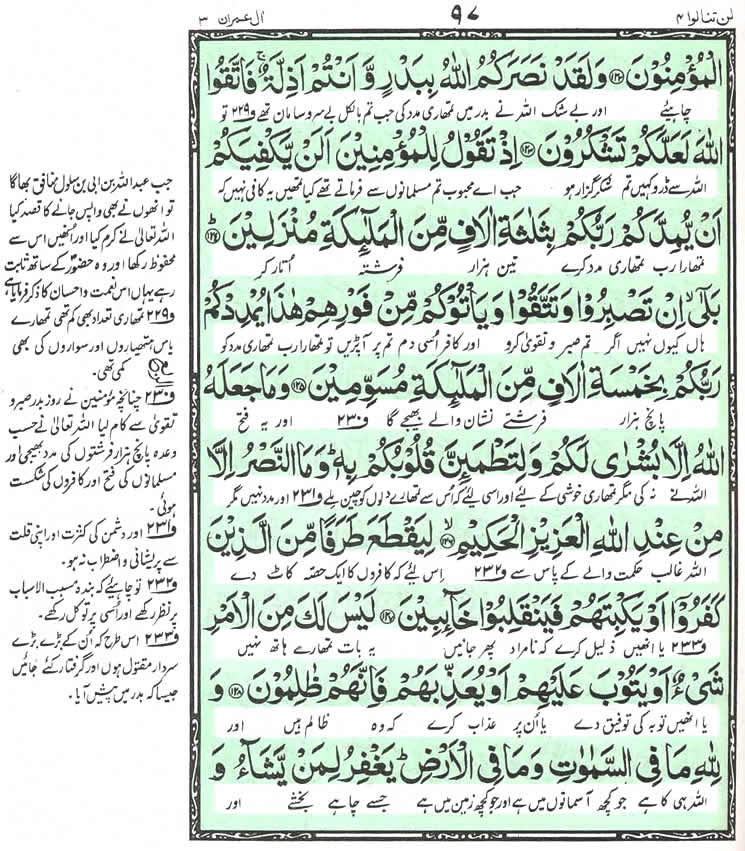 لن تنالوا ۴
۹۷
اٰل عمران ۳
الْمُؤْمِنُوْنَ ﴿۱۲۲﴾ وَلَقَدْ نَصَرَكُمُ اللّٰهُ بِبَدْرٍ وَّ اَنْتُمْ اَذِلَّةٌ ۚ فَاتَّقُوا
چاہیئے اور بے شک اللہ نے بدر میں تمہاری مدد کی جب تم بالکل بے سرو سامان تھے و۲۲۹ تو
اللّٰهَ لَعَلَّكُمْ تَشْكُرُوْنَ ﴿۱۲۳﴾ اِذْ تَقُوْلُ لِلْمُؤْمِنِيْنَ اَلَنْ يَّكْفِيَكُمْ
اللہ سے ڈرو کہیں تم شکر گزار ہو جب اے محبوب تم مسلمانوں سے فرماتے تھے کیا تمھیں یہ کافی نہیں کہ
اَنْ يُّمِدَّكُمْ رَبُّكُمْ بِثَلٰثَةِ اٰلَافٍ مِّنَ الْمَلٰٓئِكَةِ مُنْزَلِيْنَ ﴿۱۲۴﴾ؕ
تمھارا رب تمھاری مدد کرے تین ہزار فرشتہ اُتار کر
بَلٰۤى ۙ اِنْ تَصْبِرُوْا وَتَتَّقُوْا وَيَاْتُوْكُمْ مِّنْ فَوْرِهِمْ هٰذَا يُمْدِدْكُمْ
ہاں کیوں نہیں اگر تم صبر و تقویٰ کرو اور کافر اُسی دم تم پر آپڑیں تو تمھارا رب تمھاری مدد کو
رَبُّكُمْ بِخَمْسَةِ اٰلَافٍ مِّنَ الْمَلٰٓئِكَةِ مُسَوِّمِيْنَ ﴿۱۲۵﴾ وَمَا جَعَلَهُ
پانچ ہزار فرشتے نشان والے بھیجے گا و۲۳۰ اور یہ فتح
اللّٰهُ اِلَّا بُشْرٰى لَكُمْ وَلِتَطْمَئِنَّ قُلُوْبُكُمْ بِهٖ ؕ وَمَا النَّصْرُ اِلَّا
اللہ نے نہ کی مگر تمھاری خوشی کے لیئے اور اسی لیئے کہ اُس سے تمھارے دلوں کو چین ملے و۲۳۱ اور مدد نہیں مگر
مِنْ عِنْدِ اللّٰهِ الْعَزِيْزِ الْحَكِيْمِ ﴿۱۲۶﴾ۙ لِيَقْطَعَ طَرَفًا مِّنَ الَّذِيْنَ
اللہ غالب حکمت والے کے پاس سے و۲۳۲ اِس لیئے کہ کافروں کا ایک حصّہ کاٹ دے
كَفَرُوْۤا اَوْ يَكْبِتَهُمْ فَيَنْقَلِبُوْا خَآئِبِيْنَ ﴿۱۲۷﴾ لَيْسَ لَكَ مِنَ الْاَمْرِ
و۲۳۳ یا انھیں ذلیل کرے کہ نامراد پھر جائیں یہ بات تمھارے ہاتھ نہیں
شَىْءٌ اَوْ يَتُوْبَ عَلَيْهِمْ اَوْ يُعَذِّبَهُمْ فَاِنَّهُمْ ظٰلِمُوْنَ ﴿۱۲۸﴾ وَ
یا انھیں توبہ کی توفیق دے یا اُن پر عذاب کرے کہ وہ ظالم ہیں اور
لِلّٰهِ مَا فِى السَّمٰوٰتِ وَمَا فِى الْاَرْضِ ؕ يَغْفِرُ لِمَنْ يَّشَآءُ وَ
اللہ ہی کا ہے جو کچھ آسمانوں میں ہے اور جو کچھ زمین میں ہے جسے چاہے بخشے اور
جب عبداللہ بن ابی بن سلول منافق بھاگا
تو انھوں نے بھی واپس جانے کا قصد کیا
اللہ تعالیٰ نے کرم کیا اور اُنھیں اس سے
محفوظ رکھا اور وہ حضور کے ساتھ ثابت
رہے یہاں اس نعمت و احسان کا ذکر فرمایا ہے
و۲۲۹ تمھاری تعداد بھی کم تھی تمھارے
پاس ہتھیاروں اور سواروں کی بھی
کمی تھی۔
و۲۳۰ چنانچہ مؤمنین نے روز بدر صبر و
تقویٰ سے کام لیا اللہ تعالیٰ نے حسب
وعدہ پانچ ہزار فرشتوں کی مدد بھیجی اور
مسلمانوں کی فتح اور کافروں کی شکست
ہوئی۔
و۲۳۱ اور دشمن کی کثرت اور اپنی قلت
سے پریشانی و اضطراب نہ ہو۔
و۲۳۲ تو چاہیئے کہ بندہ مسبب الاسباب
پر نظر رکھے اور اُسی پر توکل رکھے۔
و۲۳۳ اس طرح کہ اُن کے بڑے بڑے
سردار مقتول ہوں اور گرفتار کئے جائیں
جیسا کہ بدر میں پیش آیا۔